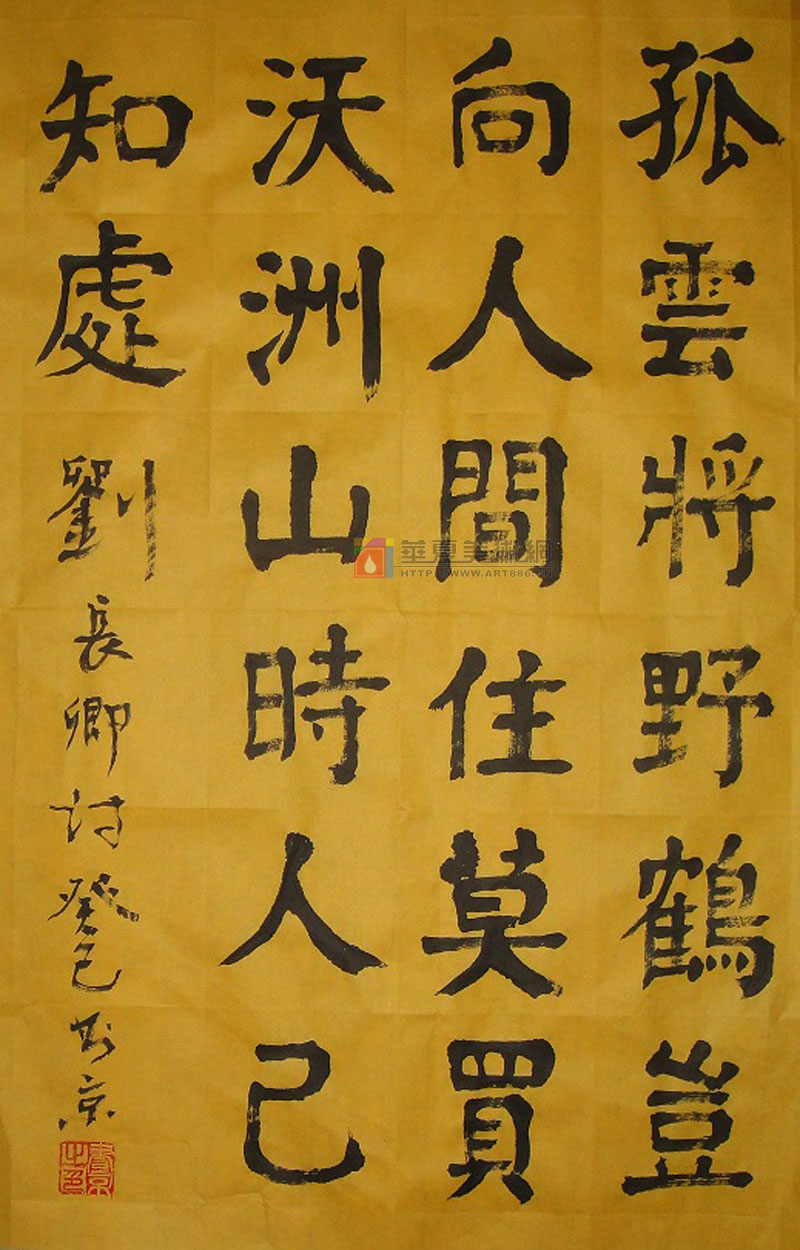 孤雲將野鶴豈
向人間住莫買
沃洲山時人已
知處劉長卿詩癸巳书京
華夏美術網
HTTP://WWW.ART886.CN